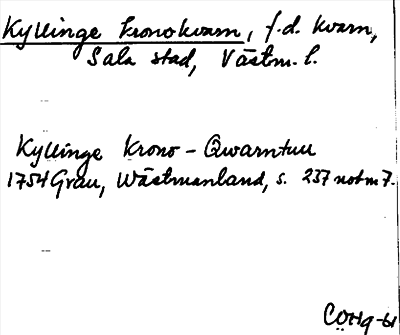 Kyllinge kronokvarn, f.d. kvarn,
Sala stad, Västm. l.
Kyllinge Krono-Qwarntull
1754 Grau, Wästmanland, s. 237 not m 7.